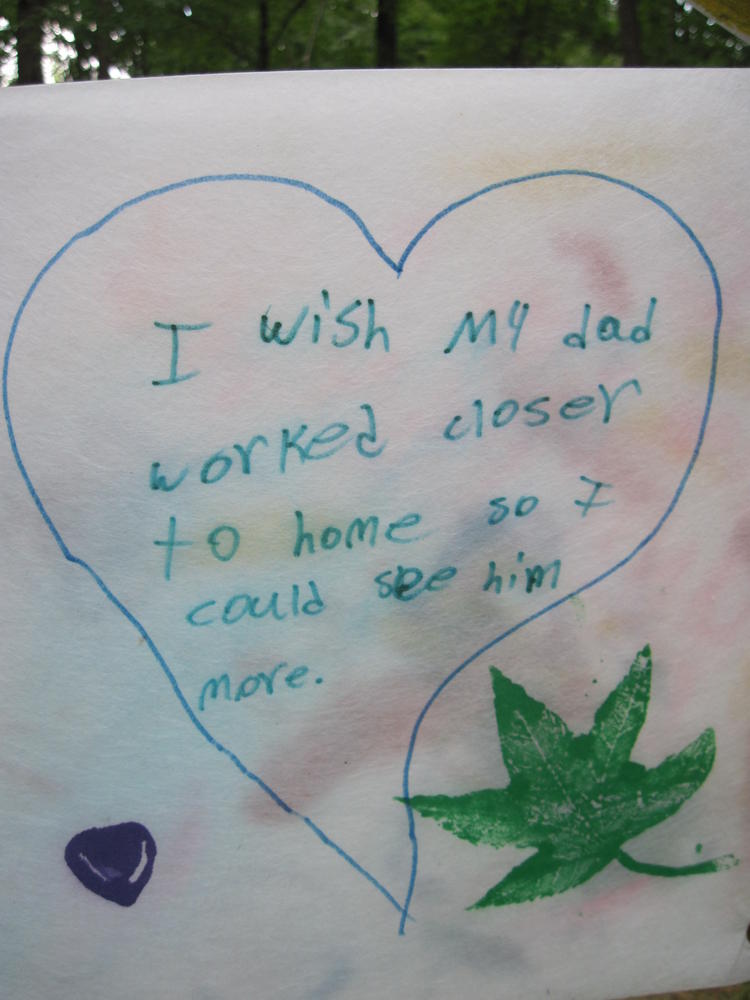 I wish my dad
worked closer
to home so I
could see him
more.